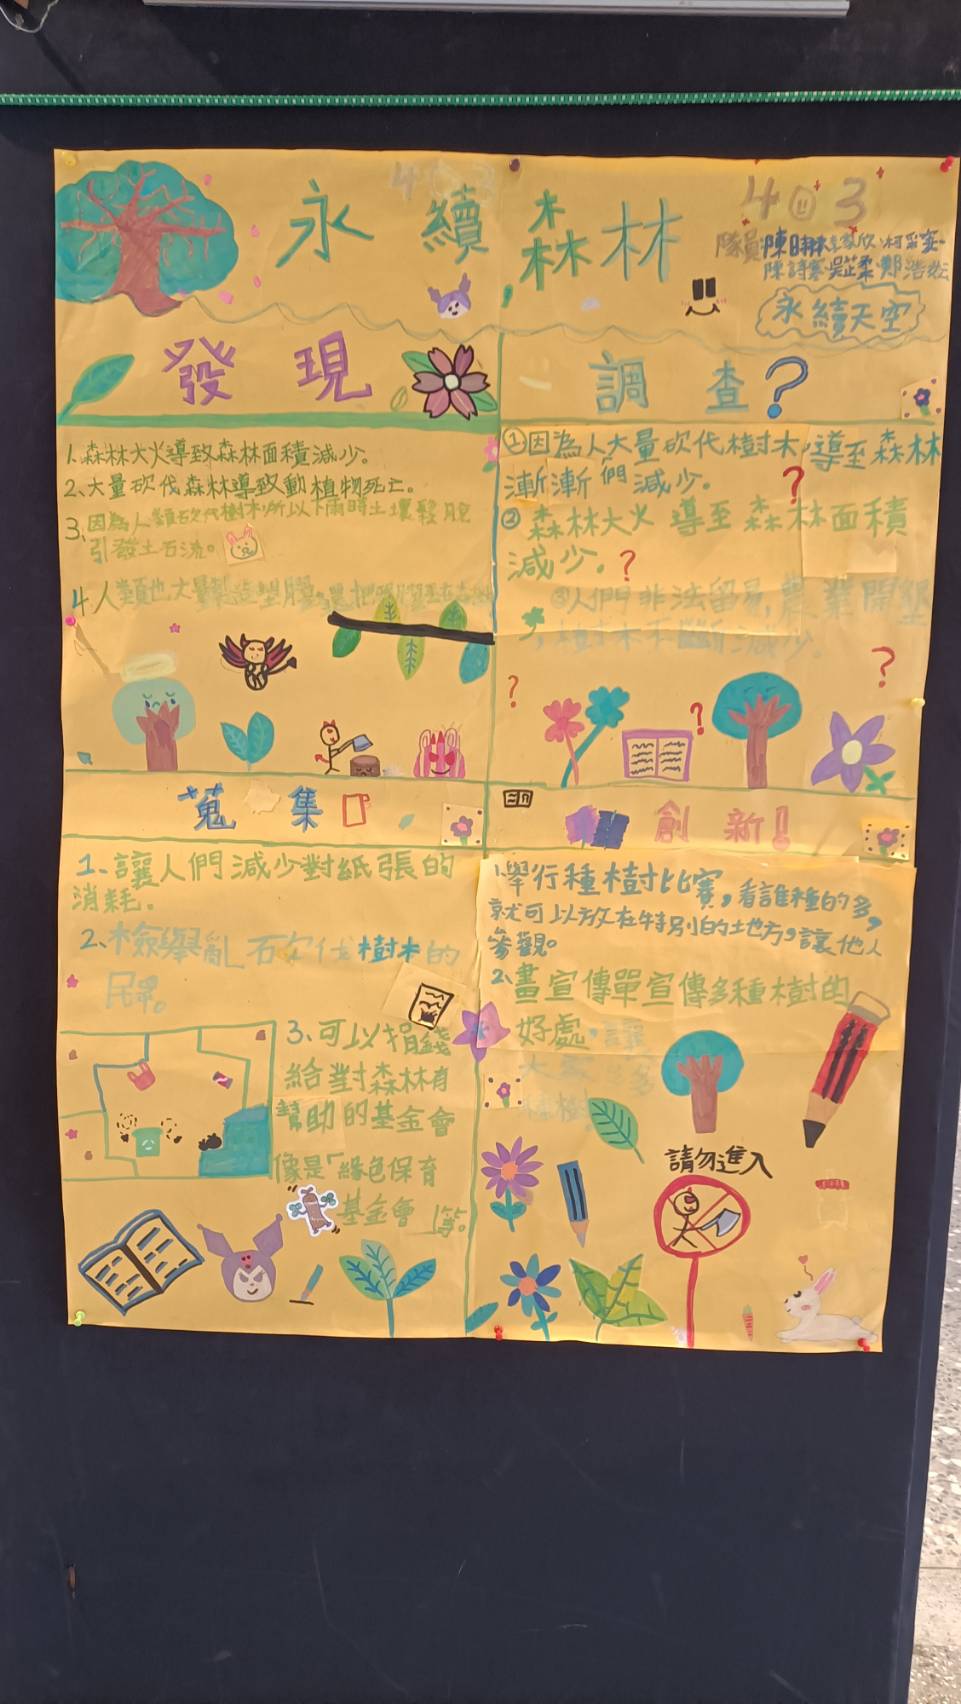 永續森林
403
隊員
永續天空
發現
1.森林大火導致森林面積減少。
2.大量砍伐森林導致動植物死亡。
3.因為人類砍伐樹木所以下雨時土壤鬆脫
引發土石流。
4.人類也大量製造塑膠
調查?
①因為人大量砍代樹木,導至森林
漸漸們減少。?
②森林大火導至森林面積
減少。?
③人們非法留易,農業開墾
,樹木不斷減少。
蒐集
1、讓人們減少對紙張的
消耗。
2、檢舉亂石欠伐樹木的
民眾。
3、可以捐錢
給對森林有
幫助的基金會
像是「綠色保育
基金會」等。
創新!
1.舉行種樹比賽,看誰種的多,
就可以放在特別的地方,讓他人
參觀。
2、畫宣傳單宣傳多種樹的
好處,讓
大家多多
種樹
請勿進入